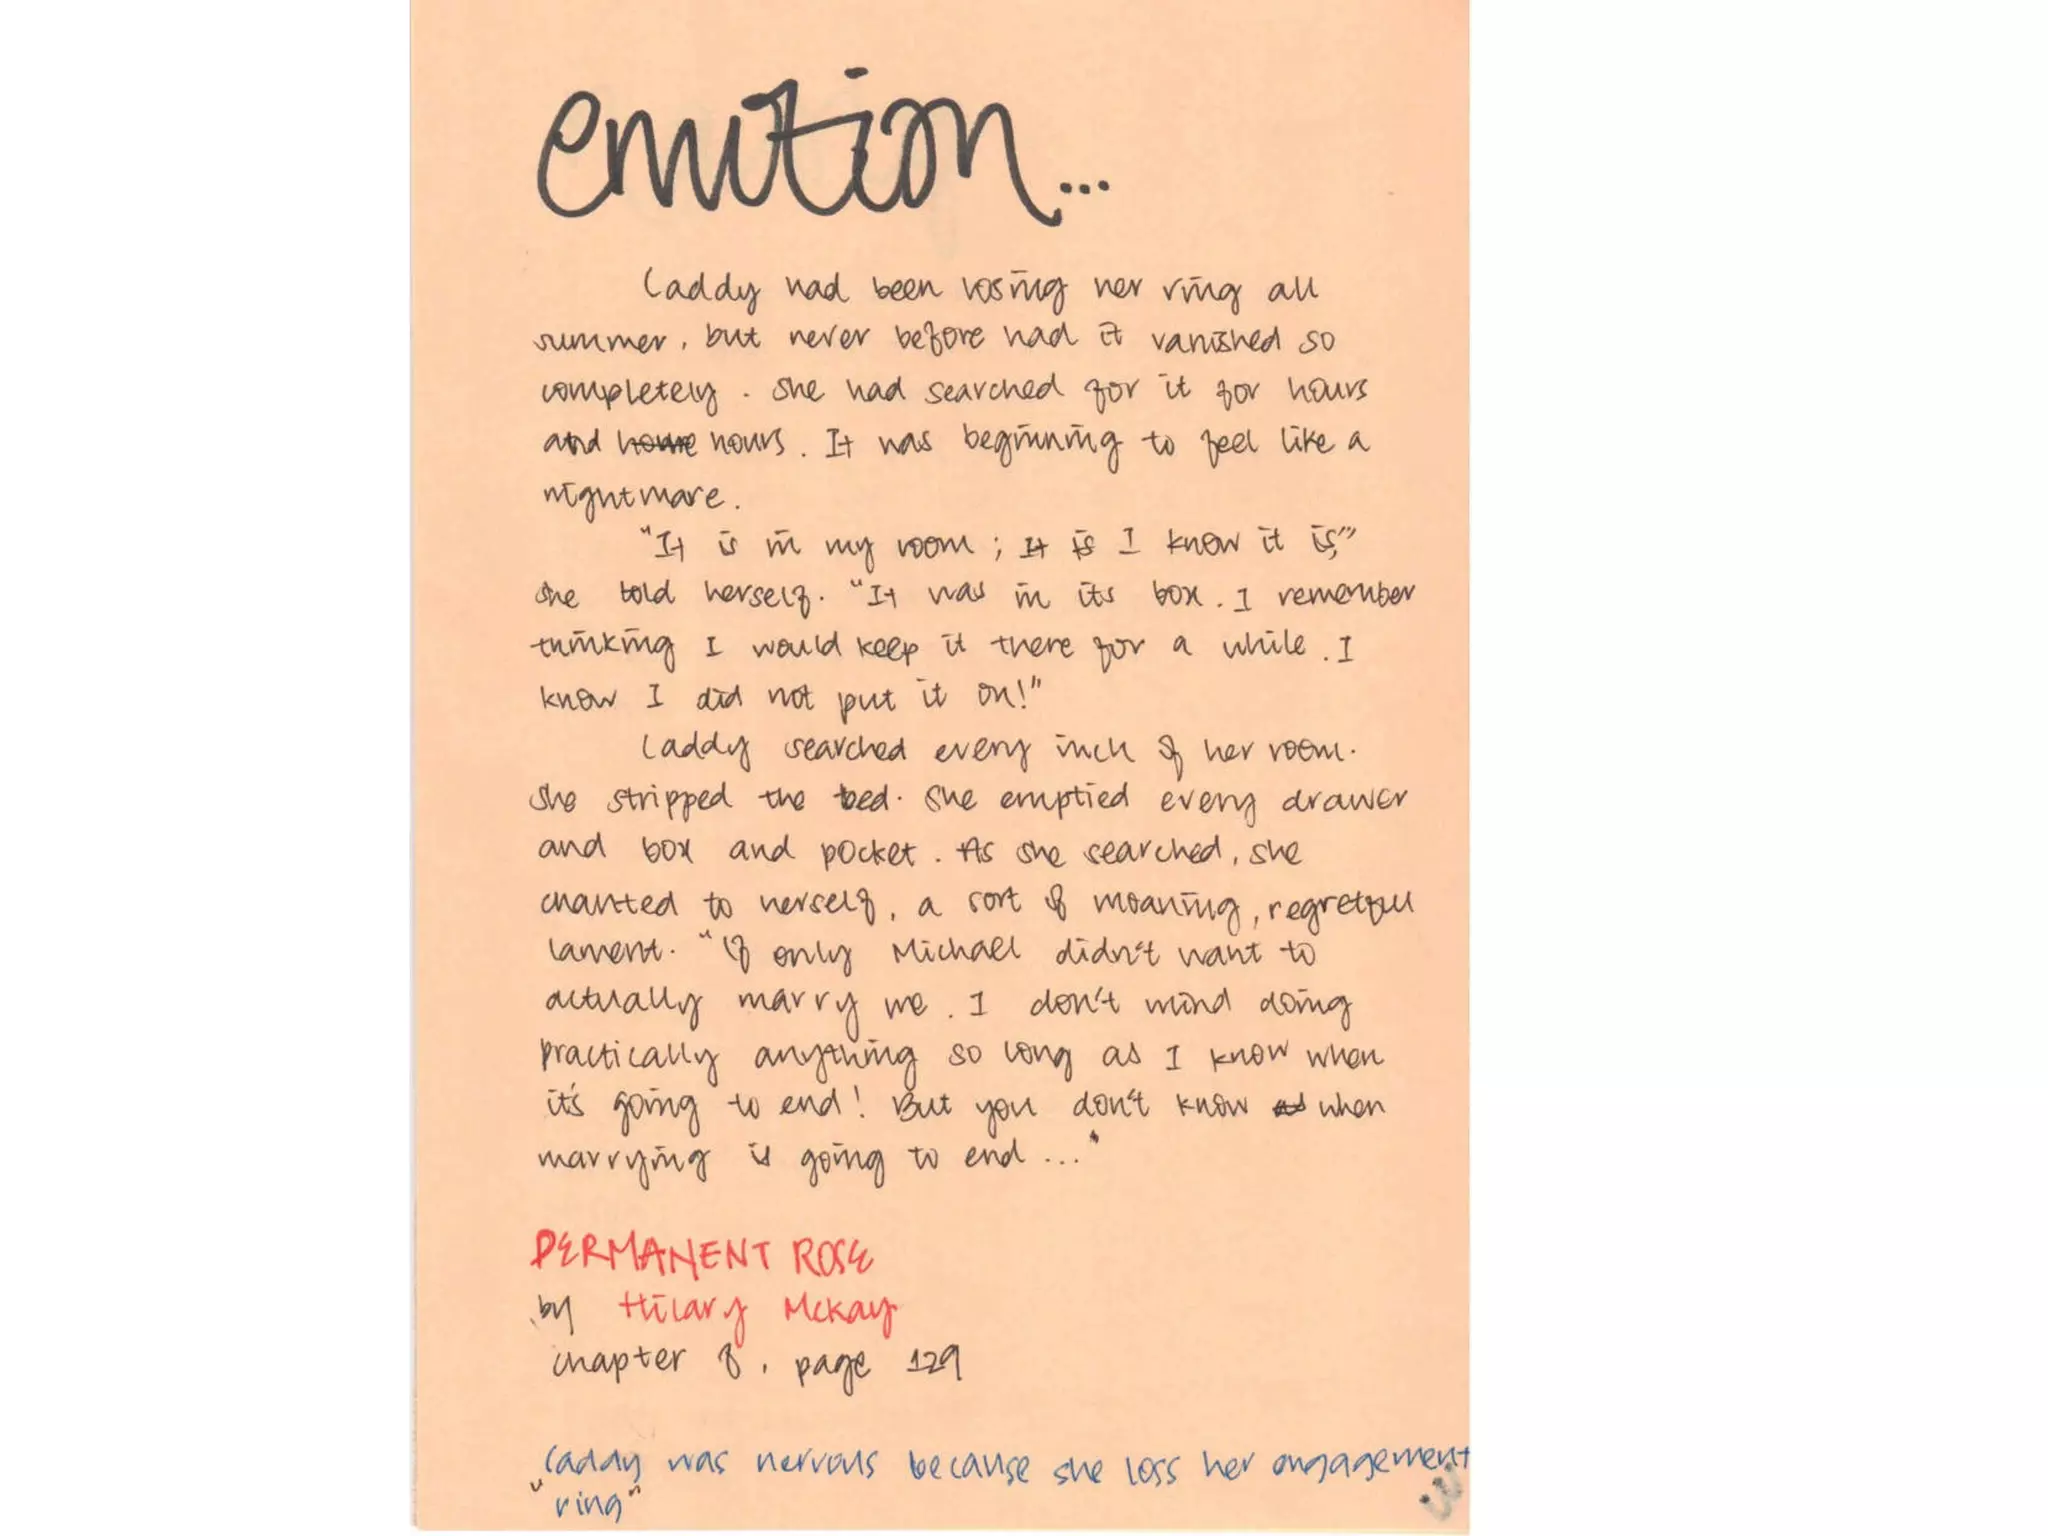 emotion...
Caddy had been losing her ring all
summer, but never before had it vanished so
completely. She had searched for it for hours
and home hours. It was beginning to feel like a
nightmare.
"It is in my room; It is I know it is,"
she told herself. "It was in its box. I remember
thinking I would keep it there for a while. I
know I did not put it on!"
Caddy searched every inch of her room.
She stripped the bed. She emptied every drawer
and box and pocket. As she searched, she
chanted to herself, a sort of moaning, regretful
lament. "If only Michael didn't want to
actually marry me. I don't mind doing
practically anything so long as I know when
it's going to end! But you don't know when
marrying is going to end..."
PERMANENT ROSE
by Hilary McKay
chapter 8, page 129
"Caddy was nervous because she loss her engagement
ring"